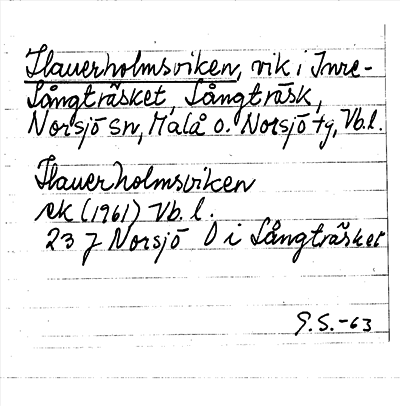 Hauerholmsviken, vik i Inre-
Långträsket, Långträsk,
Norsjö sn, Malå o. Norsjö tg, Vb.l.
Hauerholmsviken
ek (1961) Vb. l.
23 J Norsjö O i Långträsket
G.S.-63